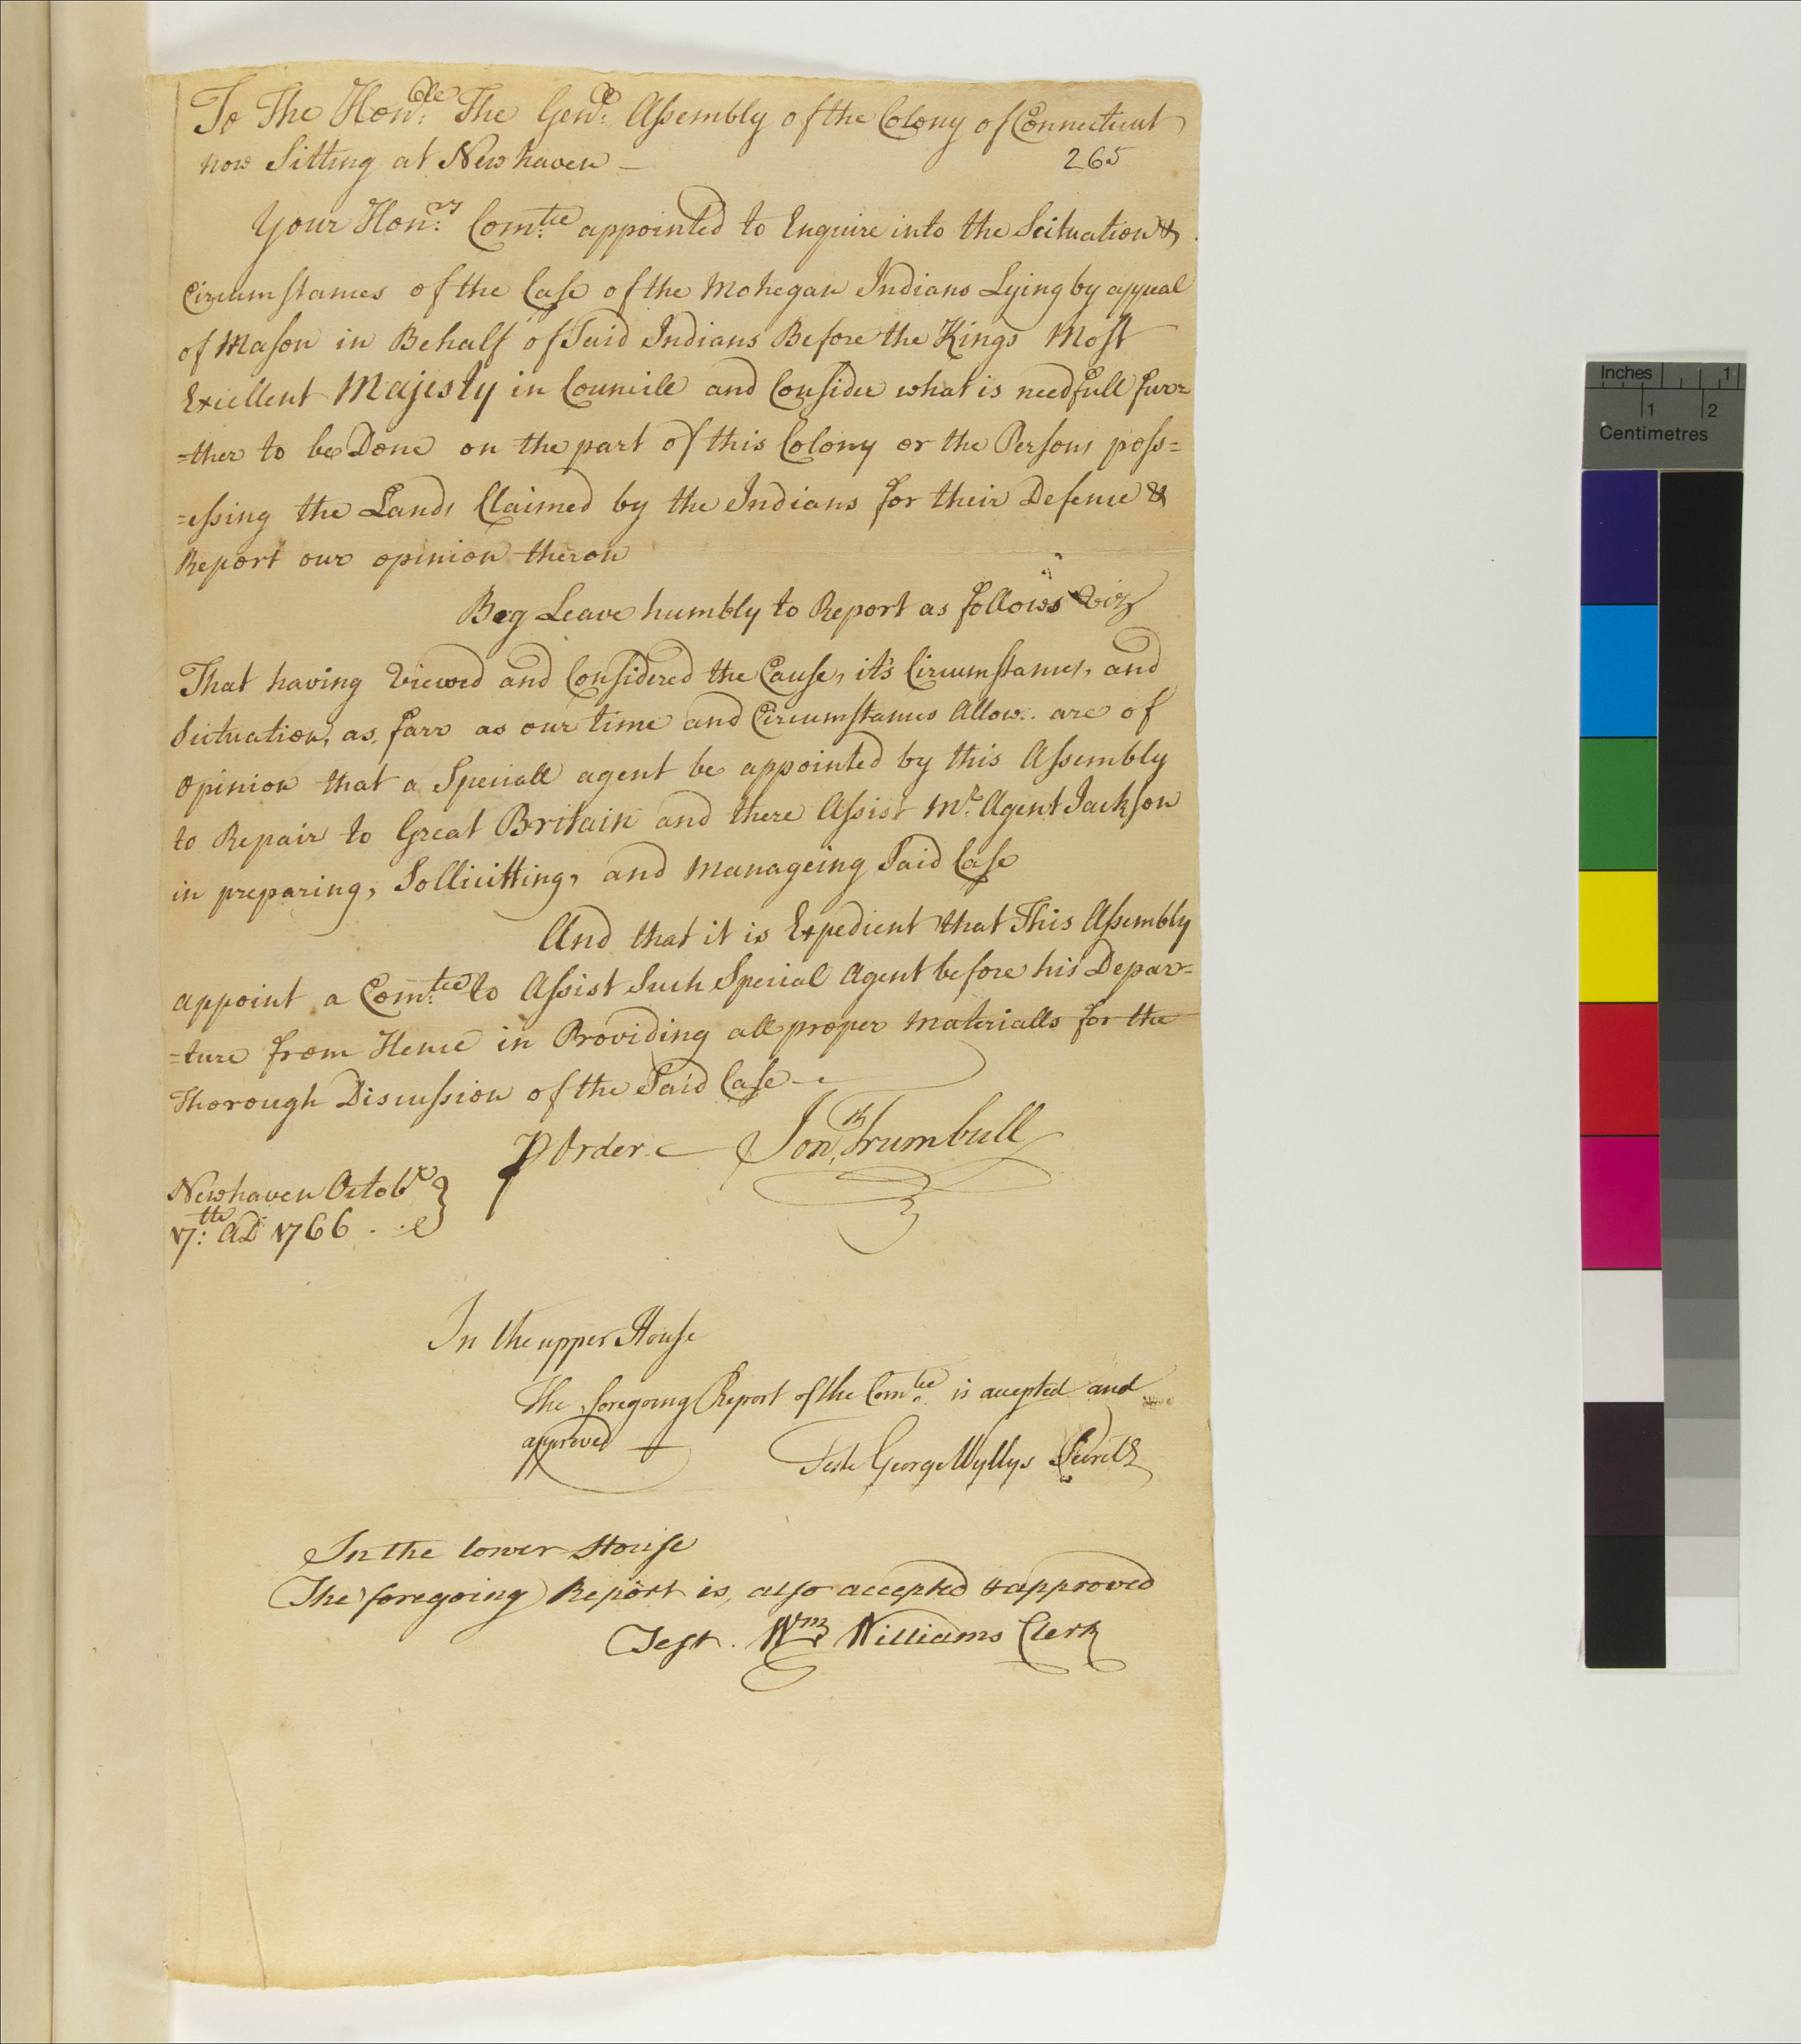 To The Honble. The Genll. Assembly of the Colony of Connecticut
now Sitting at Newhaven —
265
Your Honrs. Comtee appointed to Enquire into the Scituation &
Circumstances of the Case of the Mohegan Indians Lying by appeal
of Mason in Behalf of Said Indians Before the Kings Most
Excellent Majesty in Councill and Consider what is needfull fur=
=ther to be Done on the part of this Colony or the Persons poss=
=essing the Lands Claimed by the Indians for their Defence &
Report our opinion theron
Beg Leave humbly to Report as follows Viz
That having Viewed and Considered the Cause, it's Circumstances, and
Scituation, as farr as our time and Circumstances Allow. are of
opinion that a Speciall agent be appointed by this Assembly
to Repair to Great Britain and there Assist Mr. Agent Jackson
in preparing, Sollicitting, and Manageing Said Case
And that it is Expedient that This Assembly
appoint a Comtee to Assist Such Special Agent before his Depar=
=ture from Hence in Providing all proper Materialls for the
Thorough Discussion of the Said Case
P Order — Jonth. Trumbull
Newhaven Octobr
17:th AD 1766
In the upper House
The foregoing Report of the Comtee is accepted and
approved
Teste George Wyllys Secrety
In the lower House
The foregoing Report is, also accepted & approved
Test. Wm Williams Clerk
Inches 1
1 2
Centimetres